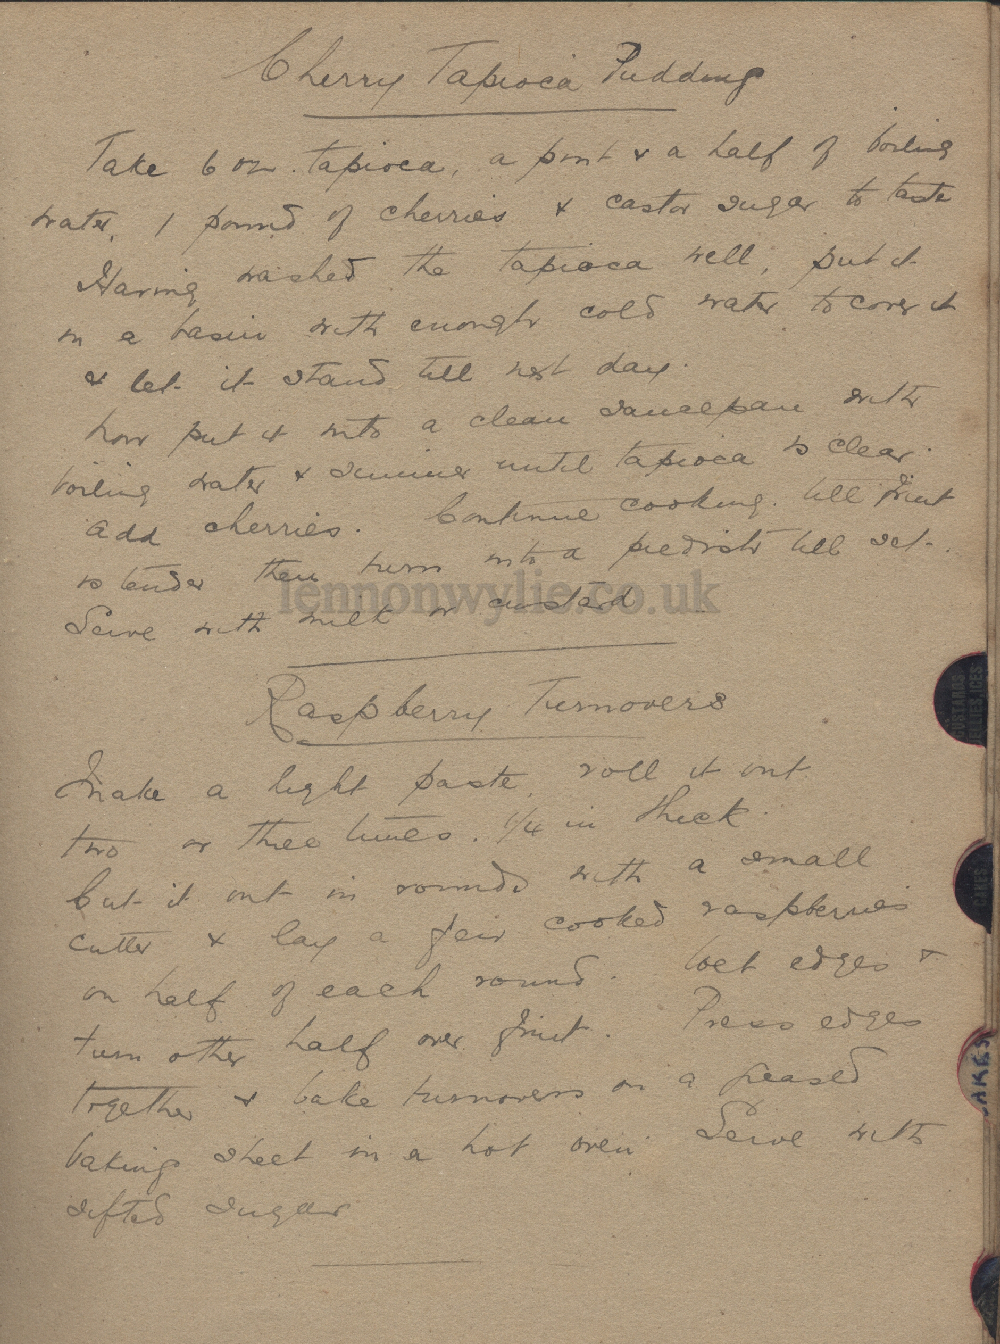 Cherry Tapioca Pudding
Take 6 ozs. tapioca, a pint & a half of boiling
water, 1 pound of cherries & castor sugar to taste
Having washed the tapioca well, put it
in a basin with enough cold water to cover it
& let it stand till next day.
Now put it into a clean saucepan with
boiling water & simmer until tapioca is clear.
Add cherries. Continue cooking till fruit
is tender then turn into a piedish till set.
Serve with milk or custard
lennonwylie.co.uk
Raspberry Turnovers
Make a light paste, roll it out
two or three times. 1/4 in thick.
Cut it out in rounds with a small
cutter & lay a few cooked raspberries
on half of each round. Wet edges &
turn other half over fruit. Press edges
together & bake turnovers on a greased
baking sheet in a hot oven. Serve with
sifted sugar
CUSTARDS
JELLIES, ICES
CAKES
CAKES